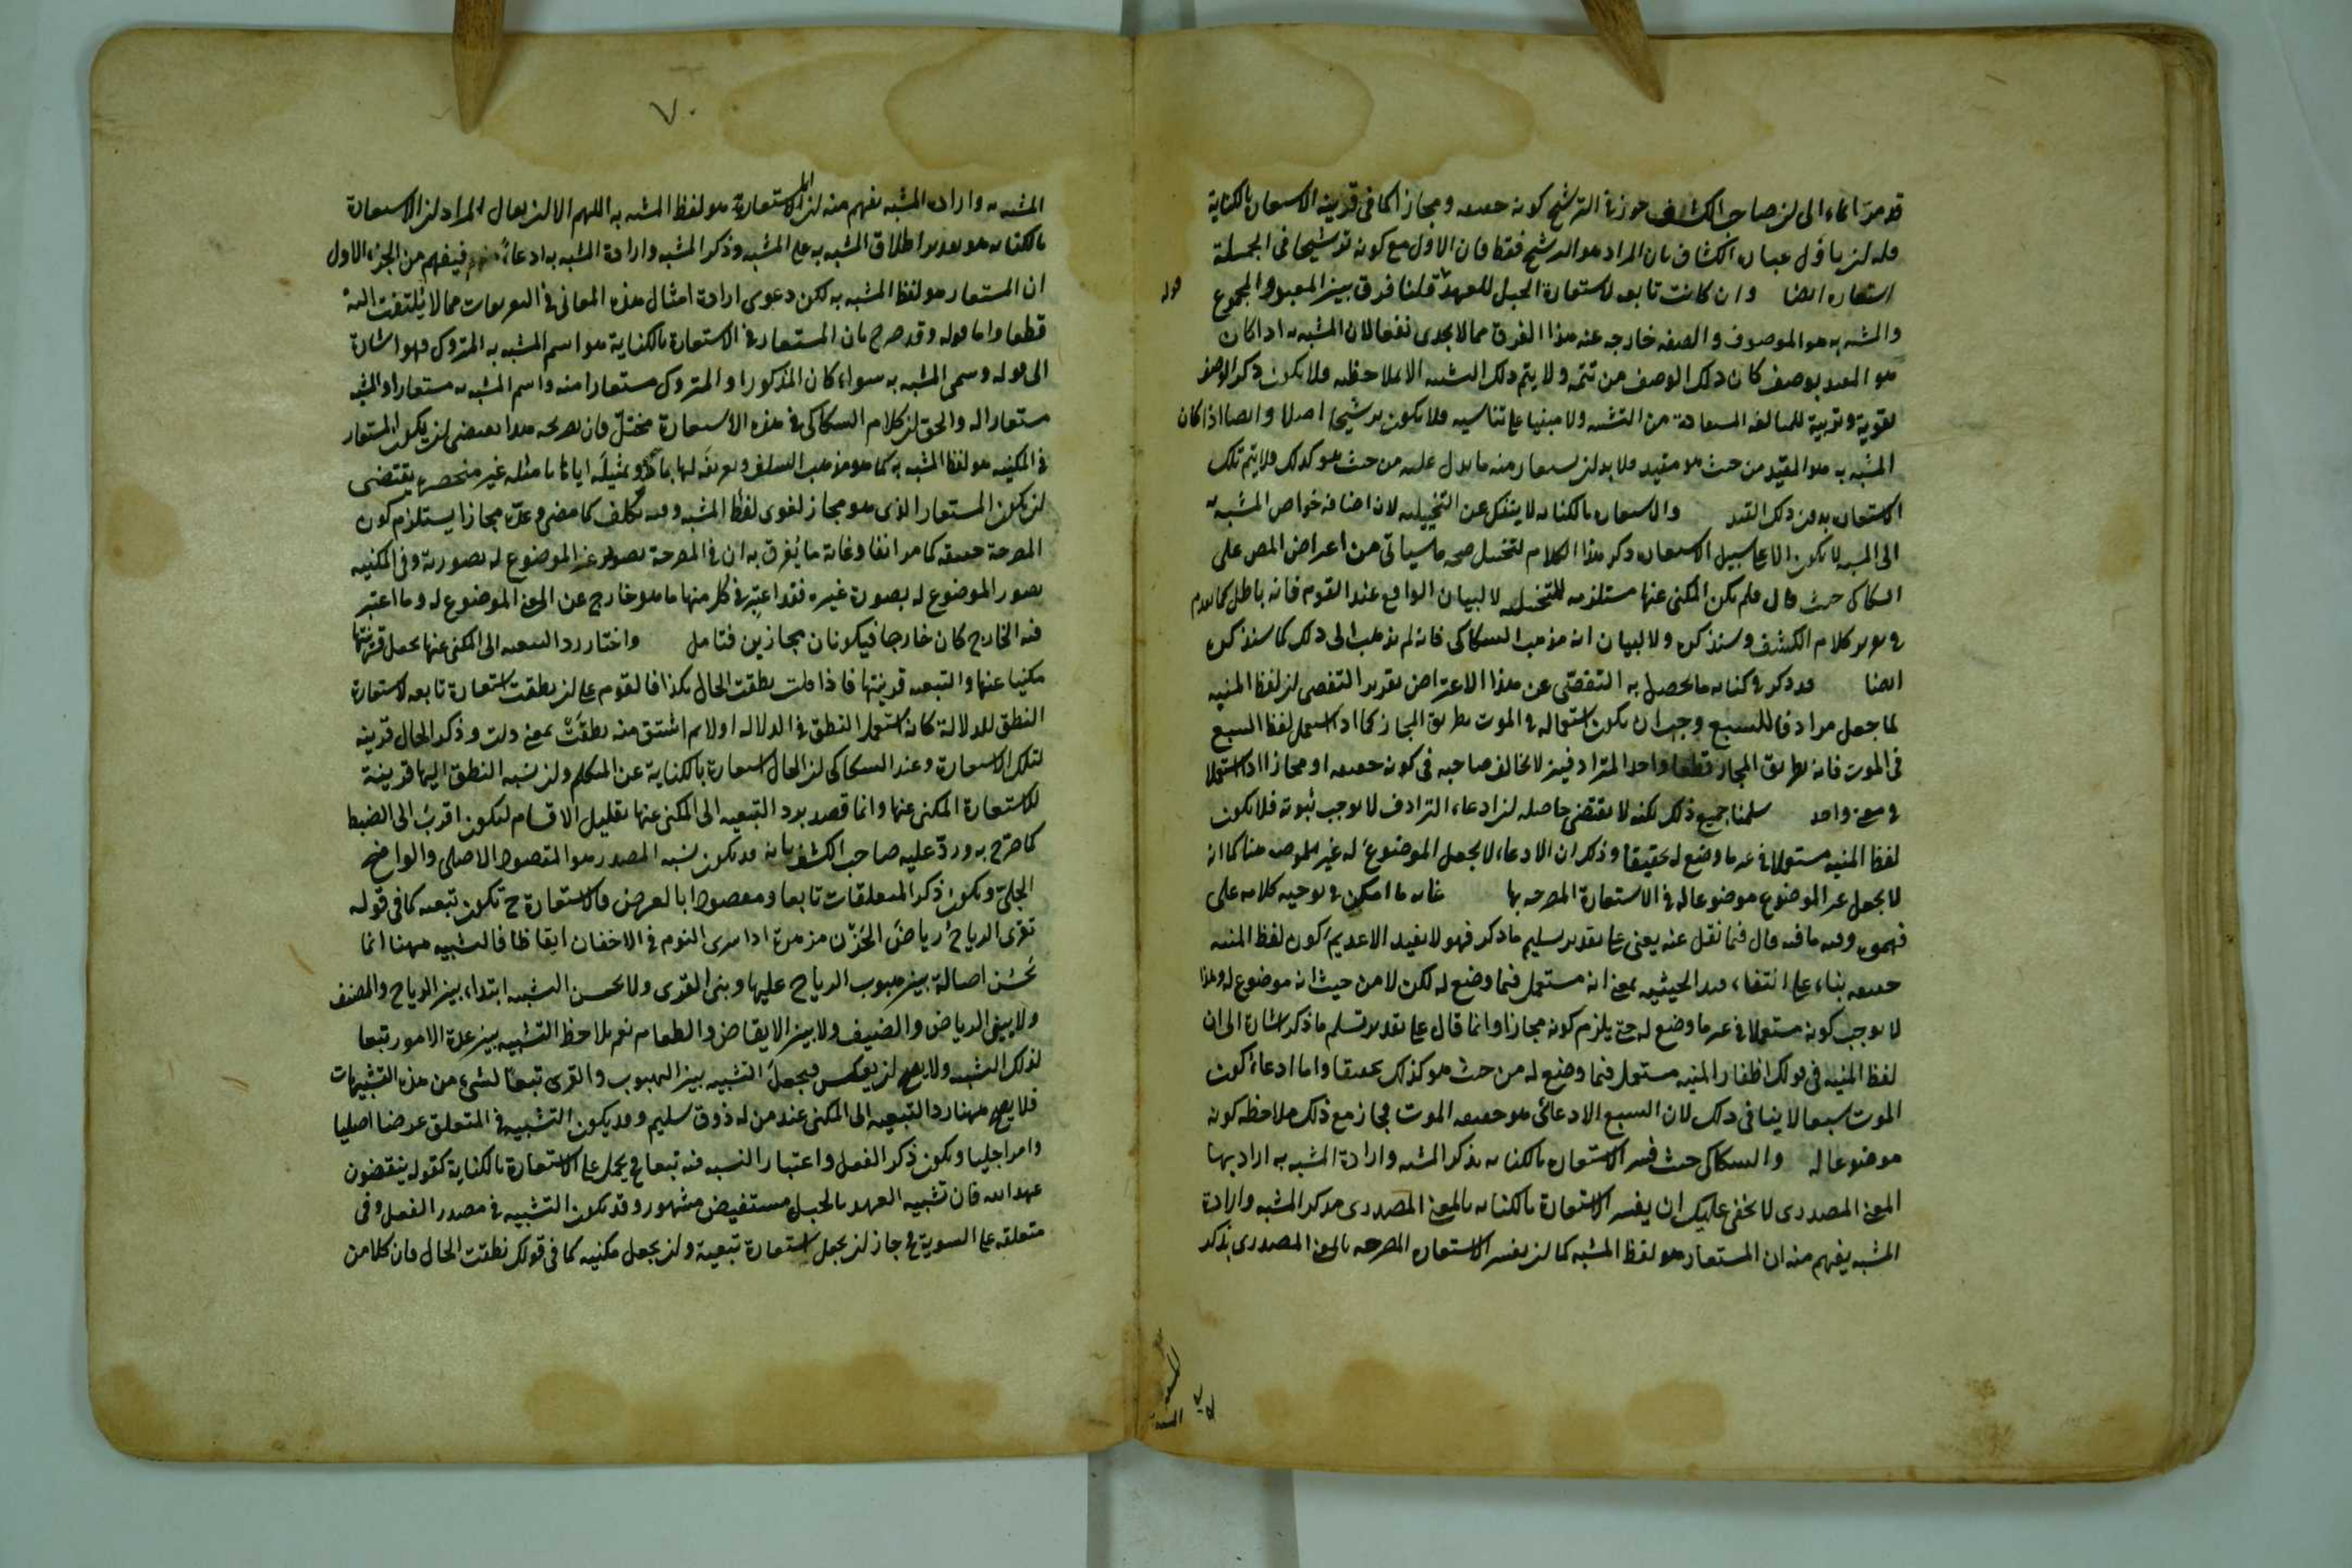 قد مر ايماء الى ان صاحب الكشف جوز في الترشيح كونه حقيقة ومجازا كما في قرينة الاستعارة بالكناية
فله ان ياول عبارة الكشاف بان المراد هو الترشيح فقط فان الاول مع كونه ترشيحا في الجملة
استعارة ايضا وان كانت تابعة لاستعارة الحبل للعهد قلنا فرق بين المقيد والمجموع
قوله
والمشبه به هو الموصوف والصفة خارجة عنه هذا الفرق مما لا يجدى نفعا لان المشبه به اذا كان
هو المقيد بوصف كان ذلك الوصف من تتمته ولا يتم ذلك التشبيه الا بملاحظته فلا يكون ذكر الوصف
تقوية وتربية للمبالغة المستفادة من التشبيه ولا مبنيا على تناسيه فلا يكون ترشيحا اصلا وايضا اذا كان
المشبه به هو المقيد من حيث هو مقيد فلا بد ان يستعار منه ما يدل عليه من حيث هو كذلك فلا يتم تلك
الاستعارة بدون ذلك القيد والاستعارة بالكناية لا ينفك عن التخييلية لان اضافة خواص المشبه به
الى المشبه لا يكون الا على سبيل الاستعارة ذكر هذا الكلام لتخييل صحة ما سياتي من اعراض المص على
السكاكى حيث قال فلم تكن المكنى عنها مستلزمة للتخييلية لا لبيان الواقع عند القوم فانه باطل كما تقدم
في تقرير كلام الكشف وسنذكره ولا لبيان انه مذهب السكاكى فانه لم يذهب الى ذلك كما سنذكره
ايضا قد ذكر في كتابه ما يحصل به التفصى عن هذا الاعتراض تقرير التفصى ان لفظ المنية
لما جعل مرادفا للسبع وجب ان يكون استعماله في الموت بطريق المجاز كما اذا استعمل لفظ السبع
في الموت فانه بطريق المجاز قطعا واحد المترادفين لا يخالف صاحبه في كونه حقيقة او مجازا اذا استعملا
في معنى واحد سلمنا جميع ذلك لكنه لا يقتضى حاصله ان ادعاء الترادف لا يوجب ثبوته فلا يكون
لفظ المنية مستعملا في غير ما وضع له تحقيقا وذلك ان الادعاء لا يجعل الموضوع له غير موضوع هنا كما انه
لا يجعل غير الموضوع موضوعا له في الاستعارة المصرحة بها غاية ما امكن في توجيه كلامه على
فهمى وفيه ما فيه قال فيما نقل عنه يعنى على تقدير تسليم ما ذكر فهو لا يفيد الا عدم كون لفظ المنية
حقيقة بناء على انتفاء قيد الحيثية بمعنى انه مستعمل فيما وضع له لكن لا من حيث انه موضوع له وهذا
لا يوجب كونه مستعملا في غير ما وضع له حتى يلزم كونه مجازا وانما قال على تقدير تسليم ما ذكر اشارة الى ان
لفظ المنية في قولك اظفار المنية مستعمل فيما وضع له من حيث هو كذلك تحقيقا واما ادعاء كون
الموت سبعا لا ينافى ذلك لان السبع الادعائى هو حقيقة الموت فجاز مع ذلك ملاحظة كونه
موضوعا له والسكاكى حيث فسر الاستعارة بالكناية بذكر المشبه وارادة المشبه به اراد بها
المعنى المصدرى لا يخفى عليك ان يفسر الاستعارة بالكناية بالمعنى المصدرى بذكر المشبه وارادة
المشبه يفهم منه ان المستعار هو لفظ المشبه كما ان يفسر الاستعارة المصرحة بالمعنى المصدرى بذكر
٧٠
المشبه به وارادة المشبه يفهم منه ان الاستعارة هو لفظ المشبه به اللهم الا ان يقال المراد ان الاستعارة
بالكناية هو تقدير اطلاق المشبه به على المشبه وذكر المشبه وارادة المشبه به ادعاء فيفهم من الجزء الاول
ان المستعار هو لفظ المشبه به لكن دعوى ارادة امثال هذه المعانى في التعريفات مما لا يلتفت اليه
قطعا واما قوله وقد صرح بان المستعار في الاستعارة بالكناية هو اسم المشبه به المتروك فهو اشارة
الى قوله وسمى المشبه به سواء كان المذكور او المتروك مستعارا منه واسم المشبه به مستعارا والمشبه
مستعارا له والحق ان كلام السكاكى في هذه الاستعارة مختل فان تصريحه هذا يقتضى ان يكون المستعار
في المكنية هو لفظ المشبه به كما هو مذهب السلف وتعريفه لها بما ذكر وتمثيله اياها بامثلة غير منحصرة يقتضى
ان يكون المستعار الذى هو مجاز لغوى لفظ المشبه وفيه تكلف كما مضى وعده مجازا يستلزم كون
المصرحة حقيقة كما مر انفا وغاية ما يفرق به ان في المصرحة تصوير غير الموضوع له بصورته وفي المكنية
تصور الموضوع له بصورة غيره فقد اعتبر في كل منها ما هو خارج عن المعنى الموضوع له وما اعتبر
فيه الخارج كان خارجا فيكونان مجازين فتامل واختار رد التبعية الى المكنى عنها بجعل قرينتها
مكنيا عنها والتبعية قرينتها فاذا قلت نطقت الحال بكذا فالقوم على ان نطقت استعارة تابعة لاستعارة
النطق للدلالة كانه استعمل النطق في الدلالة اولا ثم اشتق منه نطقت بمعنى دلت وذكر الحال قرينة
لتلك الاستعارة وعند السكاكى ان الحال استعارة بالكناية عن المتكلم وان نسبة النطق اليها قرينة
للاستعارة المكنى عنها وانما قصد برد التبعية الى المكنى عنها تقليل الاقسام ليكون اقرب الى الضبط
كما صرح به ورد عليه صاحب الكشف بانه قد يكون تشبيه المصدر هو المقصود الاصلى والواضح
الجلى ويكون ذكر المتعلقات تابعا ومقصودا بالعرض فالاستعارة ح تكون تبعية كما في قوله
تقرى الرياح رياض الحزن مزهرة اذا سرى النوم في الاجفان ايقاظا فالتشبيه ههنا انما
يحسن اصالة بين هبوب الرياح عليها وبين القرى ولا يحسن التشبيه ابتداء بين الرياح والمضيف
ولا بين الرياض والضيف ولا بين الايقاظ والطعام نعم يلاحظ التشبيه بين هذه الامور تبعا
لذلك التشبيه ولا يصح ان يعكس فيجعل التشبيه بين الهبوب والقرى تبعا لشىء من هذه التشبيهات
فلا يصح ههنا رد التبعية الى المكنى عند من له ذوق سليم وقد يكون التشبيه في المتعلق غرضا اصليا
وامرا جليا ويكون ذكر الفعل واعتبار التشبيه فيه تبعا فح يحمل على الاستعارة بالكناية كقوله ينقضون
عهد الله فان تشبيه العهد بالحبل مستفيض مشهور وقد يكون التشبيه في مصدر الفعل وفي
متعلقه على السوية فح جاز ان يجعل استعارة تبعية وان يجعل مكنية كما في قولك نطقت الحال فان كلا من